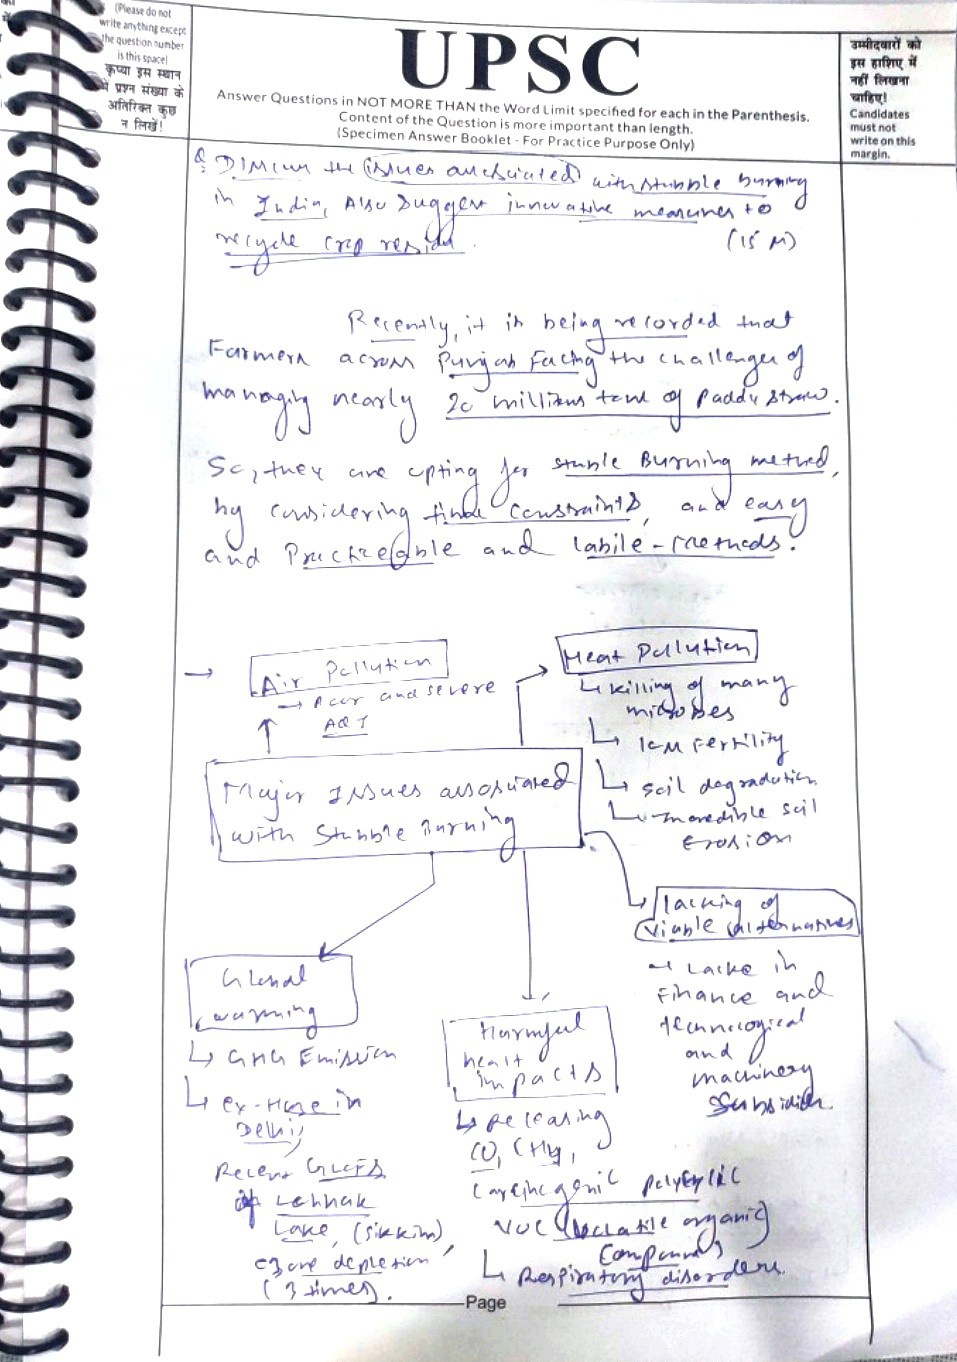 (Please do not
write anything except
the question number
is this space)
कृप्या इस स्थान
में प्रश्न संख्या के
अतिरिक्त कुछ
न लिखें!
UPSC
Answer Questions in NOT MORE THAN the Word Limit specified for each in the Parenthesis.
Content of the Question is more important than length.
(Specimen Answer Booklet - For Practice Purpose Only)
उम्मीदवारों को
इस हाशिए में
नहीं लिखना
चाहिए!
Candidates
must not
write on this
margin.
Q. Discuss the issues associated with stubble burning
in India, Also suggest innovative measures to
recycle crop residu.
(15 M)
Recently, it is being recorded that
Farmers across Punjab facing the challenges of
managing nearly 20 millions tons of Paddy straw.
So, they are opting for stuble Burning method,
by considering time constraints, and easy
and Practicable and labile-methods.
→ Air Pollution
→ Poor and severe
AQI
Heat Pollution
↳ killing of many
microbes
↳ low Fertility
↳ soil degradation
↳ Incredible soil
Erosion
Major Issues associated
with Stubble Burning
lacking of
viable alternatives
→ Lacke in
Finance and
technological
and
machinery
subsidies.
Global
warming
↳ GHG Emission
↳ ex-Haze in
Delhi,
Recent GLOFS
of Lohnak
Lake, (Sikkim),
Ozone depletion
(3 times).
Harmful
healt
impacts
↳ Releasing
CO, CH4,
Carcinogenic polycyclic
VOC (volatile organic
compounds)
↳ Respiratory disorders.
Page